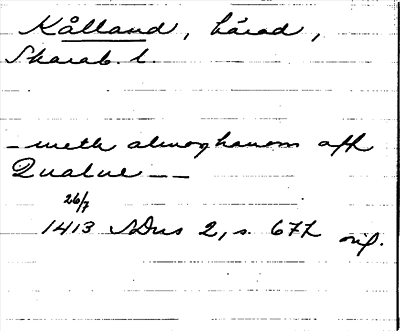 Kålland, härad,
Skarab. l.
- meth almoghanom aff
Qualue --
26/7
1413 SDns 2, s. 672 orig.